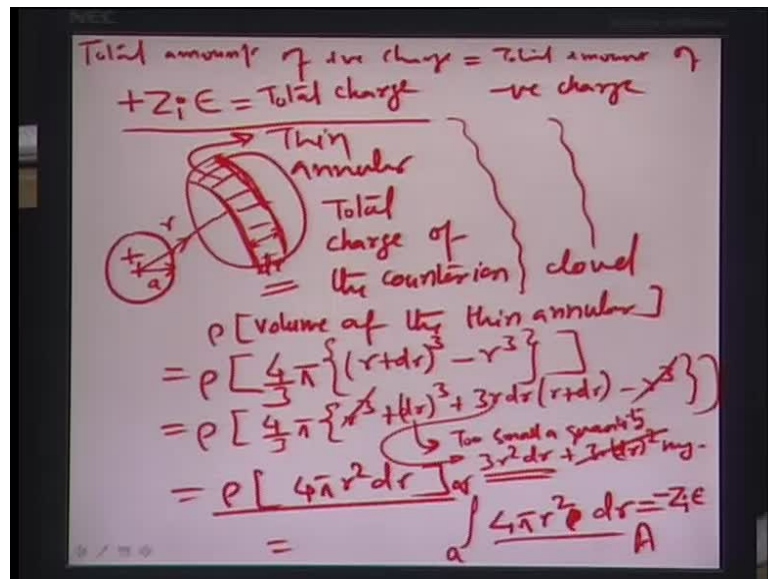 Total amount of +ve charge = Total amount of
+Zi ϵ = Total charge -ve charge
Thin
annular
Total
charge of
the counterion cloud
r
a
dr
ρ [volume of the thin annular]
= ρ [4/3 π {(r+dr)³ - r³}]
= ρ [4/3 π {r³ + (dr)³ + 3rdr(r+dr) - r³}]
Too small a quantity
3r²dr + 3r(dr)²
= ρ [4π r² dr]
= ∫ₐ 4π r² ρ dr = -Zi ϵ
A